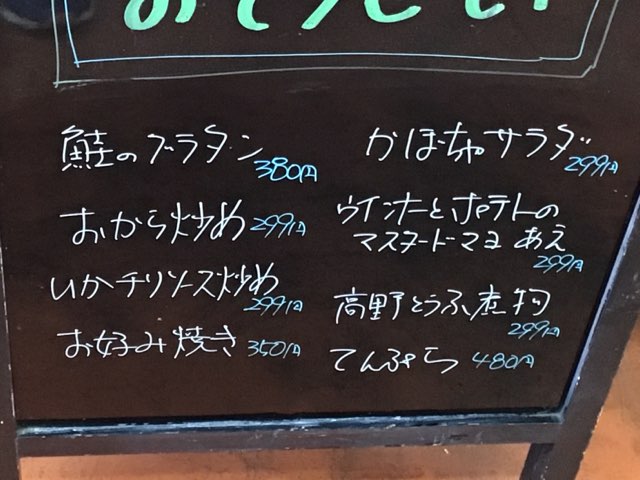 鮭のグラタン 380円
おから炒め 299円
いかチリソース炒め
299円
お好み焼き 350円
かぼちゃサラダ
299円
ウインナーとポテトの
マスタードマヨ あえ
299円
高野とうふ
299円
てんぷら 480円